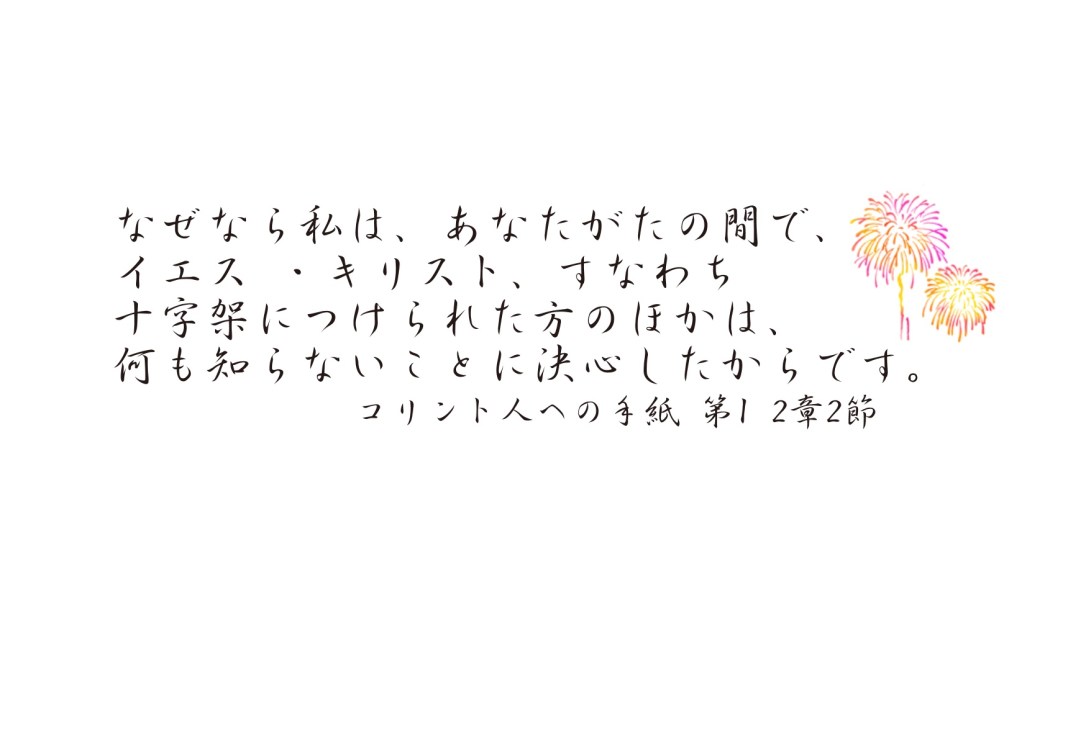 なぜなら私は、あなたがたの間で、
イエス ・キリスト、すなわち
十字架につけられた方のほかは、
何も知らないことに決心したからです。
コリント人への手紙 第1 2章2節